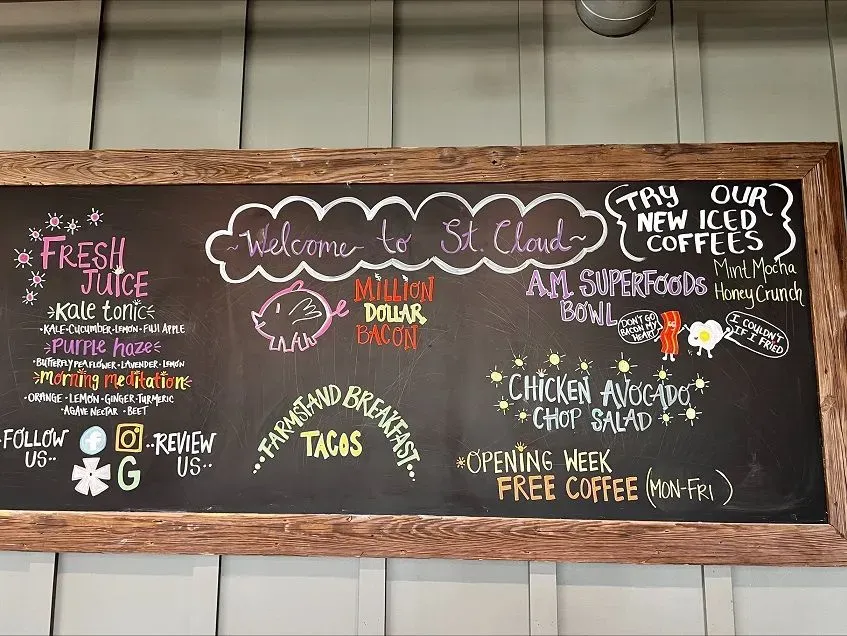 FRESH
JUICE
Kale tonic
•KALE•CUCUMBER•LEMON•FUJI APPLE
Purple haze
•BUTTERFLYPEAFLOWER•LAVENDER•LEMON
Morning meditation
•ORANGE•LEMON•GINGER•TURMERIC
AGAVE NECTAR•BEET
FOLLOW
US..
f
G
..REVIEW
US..
~Welcome to St. Cloud~
MILLION
DOLLAR
BACON
FARMSTAND BREAKFAST
TACOS
TRY OUR
NEW ICED
COFFEES
Mint Mocha
Honey Crunch
A.M. SUPERFOODS
BOWL
DON'T GO
BACON MY
HEART
I COULDN'T
IF I FRIED
CHICKEN AVOCADO
CHOP SALAD
*OPENING WEEK
FREE COFFEE (MON-FRI)